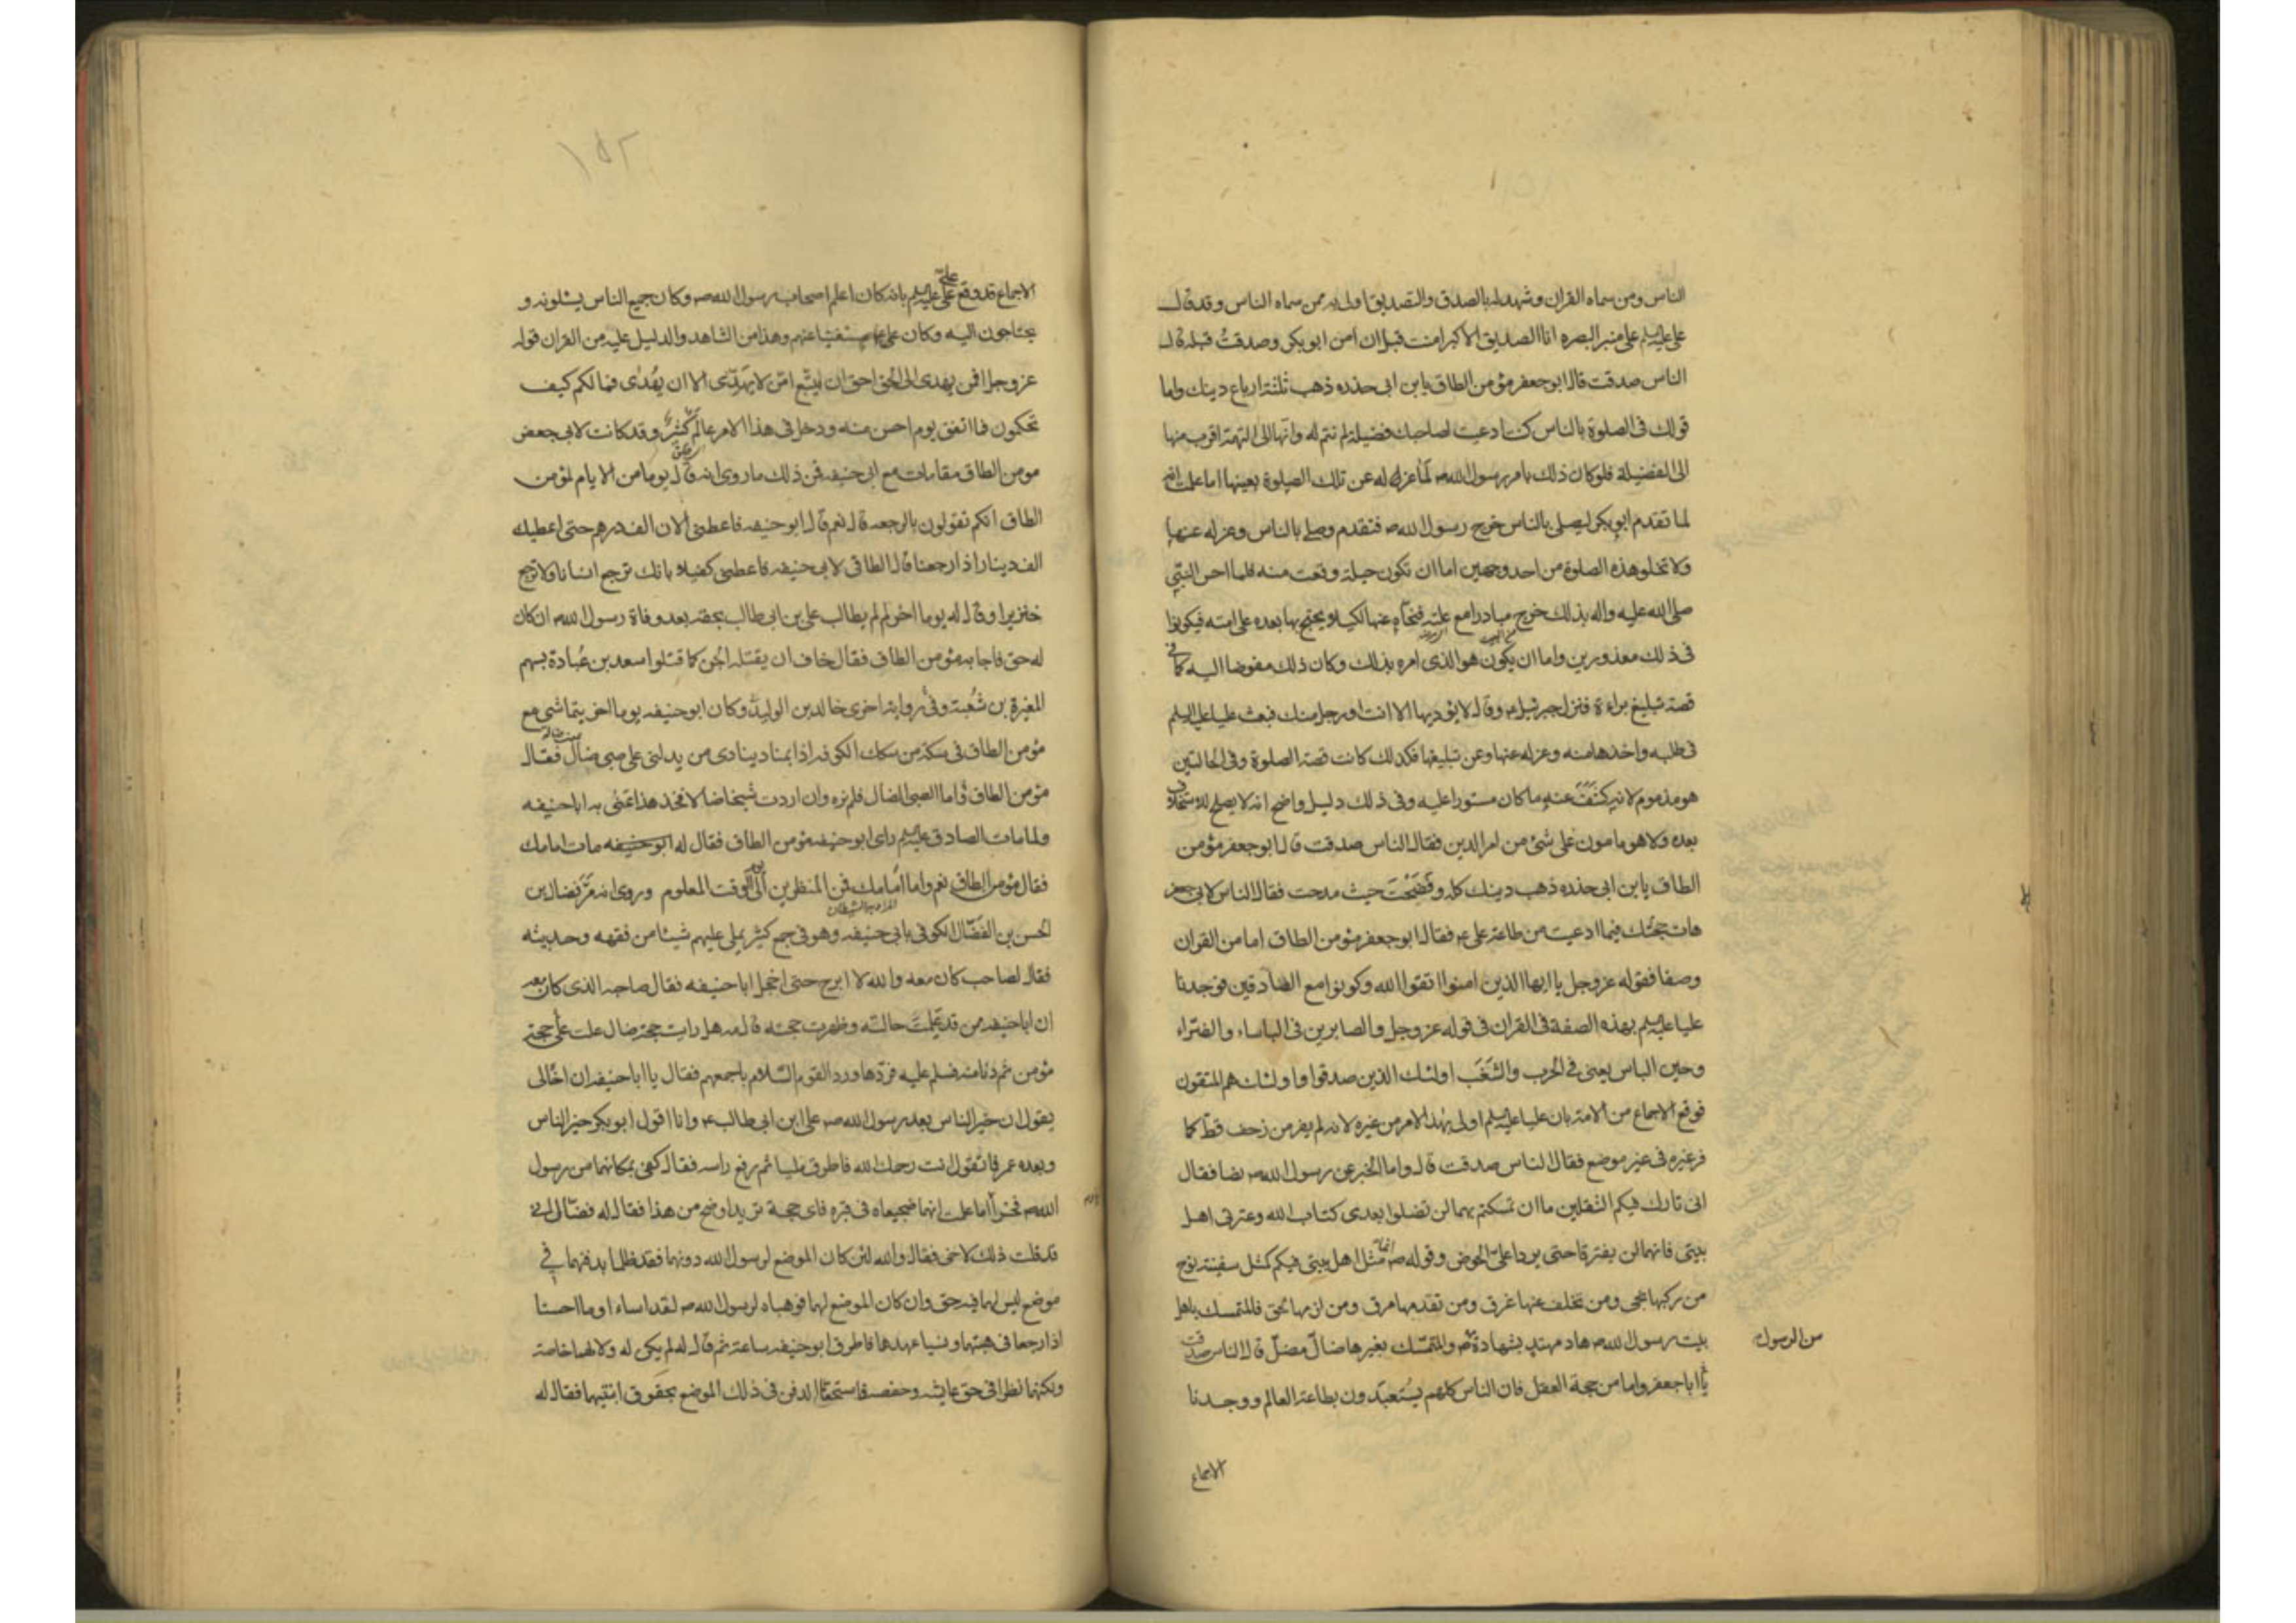 الناس ومن سماه القران وشهد له بالصدق والتصديق اولى به ممن سماه الناس وقد قال
على عليه السلم على منبر البصره انا الصديق الاكبر امنت قبل ان امن ابو بكر وصدقت قبله قال
الناس صدقت قال ابو جعفر مؤمن الطاق يابن ابى حذره ذهب ثلثة ارباع دينك واما
قولك فى الصلوة بالناس كنت ادعيت لصاحبك فضيلة لم تتم له وانها الى التهمة اقرب منها
الى الفضيلة فلو كان ذلك بامر رسول الله ص لما عزله عن تلك الصلوة بعينها اما علمت انه
لما تقدم ابو بكر ليصلى بالناس خرج رسول الله ص فتقدم وصلى بالناس وعزله عنها
ولا تخلو هذه الصلوة من احد وجهين اما ان تكون حيلة وقعت منه فلما احس النبى
صلى الله عليه واله بذلك خرج مبادرا مع علته فنحاه عنها لكيلا يحتج بها بعده على امته فيكونوا
فى ذلك معذورين واما ان يكون هو الذى امره بذلك وكان ذلك مفوضا اليه كما فى
قصة تبليغ براءة فنزل جبرئيل ع وقال لا يؤديها الا انت او رجل منك فبعث عليا عليه السلم
فى طلبه واخذها منه وعزله عنها وعن تبليغها فكذلك كانت قصة الصلوة وفى الحالتين
هو مذموم لانه كشف عنه ما كان مستورا عليه وفى ذلك دليل واضح انه لا يصلح للاستخلاف
بعده ولا هو مامون على شئ من امر الدين فقال الناس صدقت قال ابو جعفر مؤمن
الطاق يابن ابى حذره ذهب دينك كله وفضحت حيث مدحت فقال الناس لابى جعفر
هات حجتك فيما ادعيت من طاعة على ع فقال ابو جعفر مؤمن الطاق اما من القران
وصفا فقوله عز وجل يا ايها الذين امنوا اتقوا الله وكونوا مع الصادقين فوجدنا
عليا عليه السلم بهذه الصفة فى القران فى قوله عز وجل والصابرين فى الباساء والضراء
وحين الباس يعنى فى الحرب والشغب اولئك الذين صدقوا واولئك هم المتقون
فوقع الاجماع من الامة بان عليا عليه السلم اولى بهذا الامر من غيره لانه لم يفر من زحف قط كما
فر غيره فى غير موضع فقال الناس صدقت قال واما الخبر عن رسول الله ص نصا فقال
انى تارك فيكم الثقلين ما ان تمسكتم بهما لن تضلوا بعدى كتاب الله وعترتى اهل
بيتى فانهما لن يفترقا حتى يردا على الحوض وقوله ص انما مثل اهل بيتى فيكم كمثل سفينة نوح
من ركبها نجى ومن تخلف عنها غرق ومن تقدمها مرق ومن لزمها لحق فالمتمسك باهل
بيت رسول الله ص هاد مهتد بشهادة ص والمتمسك بغيرها ضال مضل قال الناس صدقت
من الرسول
يا ابا جعفر واما من حجة العقل فان الناس كلهم يستعبدون بطاعة العالم ووجدنا
الاجماع
١٥٢
الاجماع قد وقع على على عليه السلم بانه كان اعلم اصحاب رسول الله ص وكان جميع الناس يسئلونه و
يحتاجون اليه وكان على ع مستغنيا عنهم وهذا من الشاهد والدليل عليه من القران قوله
عز وجل افمن يهدى الى الحق احق ان يتبع امن لا يهدى الا ان يهدى فما لكم كيف
تحكمون فما اتفق يوم احسن منه ودخل فى هذا الامر عالم كثير وقد كانت لابى جعفر
مومن الطاق مقامات مع ابى حنيفه فمن ذلك ما روى انه قال يوما من الايام لمؤمن
الطاق انكم تقولون بالرجعه قال نعم قال ابو حنيفه فاعطنى الان الف درهم حتى اعطيك
الف دينار اذا رجعنا قال الطاقى لابى حنيفه فاعطنى كفيلا بانك ترجع انسانا ولا ترجع
خنزيرا وقال له يوما اخر لم لم يطالب على بن ابى طالب بحقه بعد وفاة رسول الله ص ان كان
له حق فاجابه مؤمن الطاق فقال خاف ان يقتله الجن كما قتلوا سعد بن عبادة بسهم
المغيرة بن شعبة وفى رواية اخرى خالد بن الوليد وكان ابو حنيفه يوما اخر يتماشى مع
مؤمن الطاق فى سكة من سكك الكوفه اذا بمناد ينادى من يدلنى على صبى ضال فقال
مؤمن الطاق اما الصبى الضال فلم نره وان اردت شيخا ضالا فخذ هذا عنى به ابا حنيفه
ولما مات الصادق عليه السلم راى ابو حنيفه مؤمن الطاق فقال له ابو حنيفه مات امامك
فقال مؤمن الطاق نعم واما امامك فمن المنظرين الى يوم الوقت المعلوم وروى انه مر فضال بن
المراد به الشيطان
الحسن بن الفضال الكوفى بابى حنيفه وهو فى جمع كثير يملى عليهم شيئا من فقهه وحديثه
فقال لصاحب كان معه والله لا ابرح حتى اخجل ابا حنيفه فقال صاحبه الذى كان معه
ان ابا حنيفه من قد علمت حالته وظهرت حجته قال مه هل رايت حجة ضال علت على حجة
مؤمن ثم دنا منه فسلم عليه فردها ورد القوم السلام باجمعهم فقال يا ابا حنيفه ان اخا لى
يقول ان خير الناس بعد رسول الله ص على ابن ابى طالب ع وانا اقول ابو بكر خير الناس
وبعده عمر فما تقول انت رحمك الله فاطرق مليا ثم رفع راسه فقال كفى بمكانهما من رسول
الله ص فخرا اما علمت انهما ضجيعاه فى قبره فاى حجة تريد اوضح من هذا فقال له فضال انى
قد قلت ذلك لاخى فقال والله لئن كان الموضع لرسول الله دونهما فقد ظلما بدفنهما فى
موضع ليس لهما فيه حق وان كان الموضع لهما فوهباه لرسول الله ص لقد اساءا وما احسنا
اذا رجعا فى هبتهما ونسيا عهدهما فاطرق ابو حنيفه ساعة ثم قال له لم يكن له ولا لهما خاصة
ولكنهما نظرا فى حق عايشه وحفصه فاستحقا الدفن فى ذلك الموضع بحقوق ابنتيهما فقال له